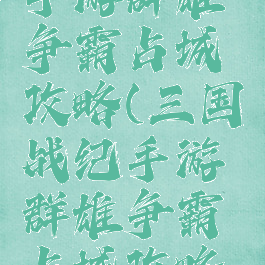 手游群雄
争霸占城
攻略(三国
战纪手游
群雄争霸
占城攻略